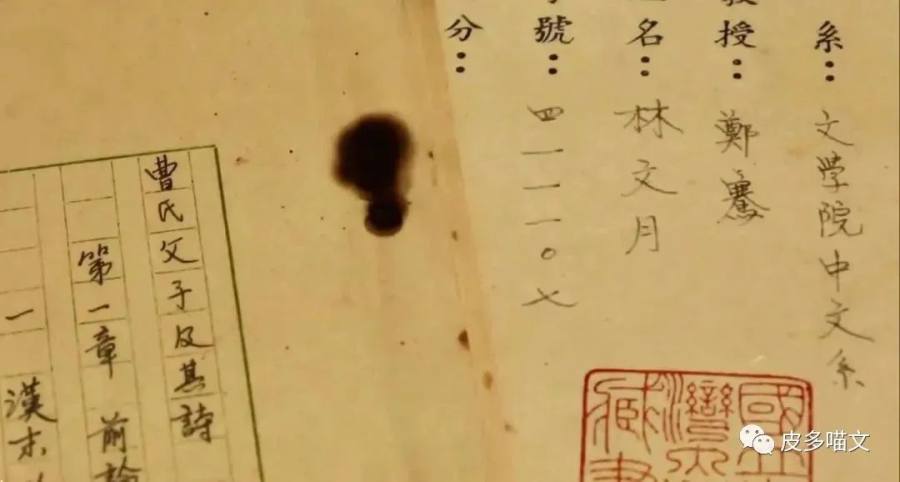 系：文学院中文系
授：鄭騫
名：林文月
號：四一一一〇七
分：
曹氏父子及其詩
第一章 前論
一 漢末
皮多喵文